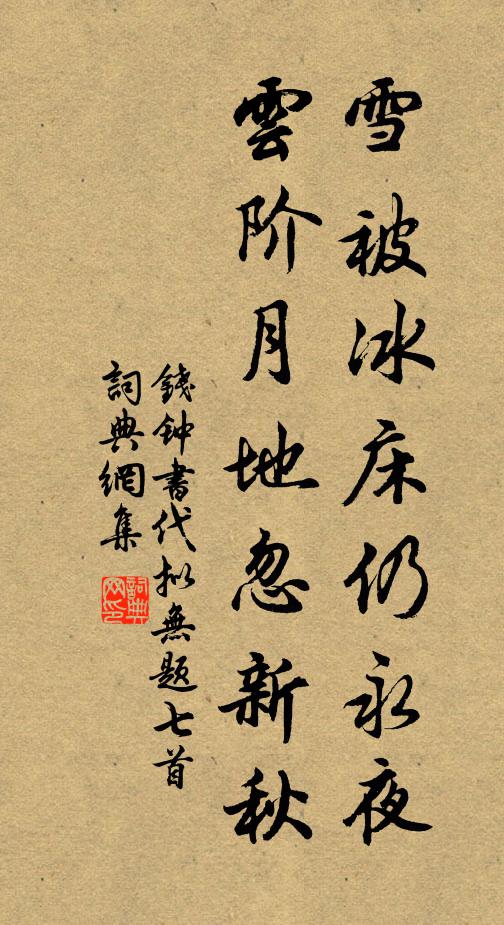 雪被冰床仍永夜
雲阶月地忽新秋
錢钟書代拟無题七首
詞典網集
詞典网印